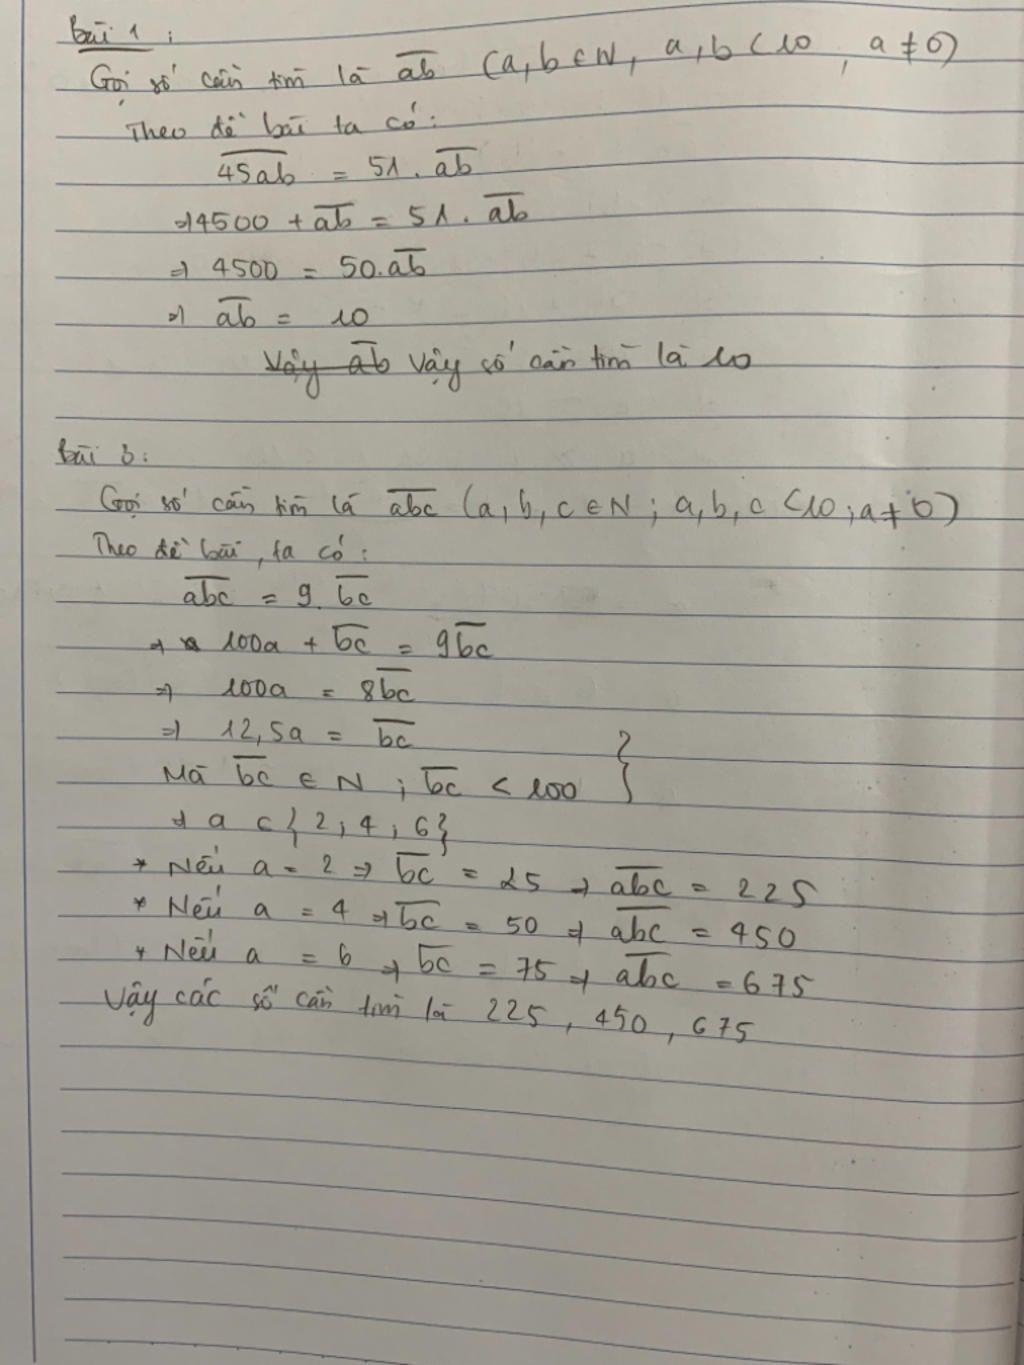 Bài 1:
Gọi số cần tìm là a̅b̅ (a, b ∈ N, a, b < 10, a ≠ 0)
Theo đề bài ta có:
4̅5̅a̅b̅ = 51. a̅b̅
⇒ 4500 + a̅b̅ = 51. a̅b̅
⇒ 4500 = 50. a̅b̅
⇒ a̅b̅ = 10
Vậy a̅b̅ Vậy số cần tìm là 10
Bài 3:
Gọi số cần tìm là a̅b̅c̅ (a, b, c ∈ N; a, b, c < 10; a ≠ 0)
Theo đề bài, ta có:
a̅b̅c̅ = 9. b̅c̅
⇒ 100a + b̅c̅ = 9b̅c̅
⇒ 100a = 8b̅c̅
⇒ 12,5a = b̅c̅
Mà b̅c̅ ∈ N; b̅c̅ < 100 }
⇒ a ∈ {2; 4; 6}
* Nếu a = 2 ⇒ b̅c̅ = 25 ⇒ a̅b̅c̅ = 225
* Nếu a = 4 ⇒ b̅c̅ = 50 ⇒ a̅b̅c̅ = 450
* Nếu a = 6 ⇒ b̅c̅ = 75 ⇒ a̅b̅c̅ = 675
Vậy các số cần tìm là 225, 450, 675